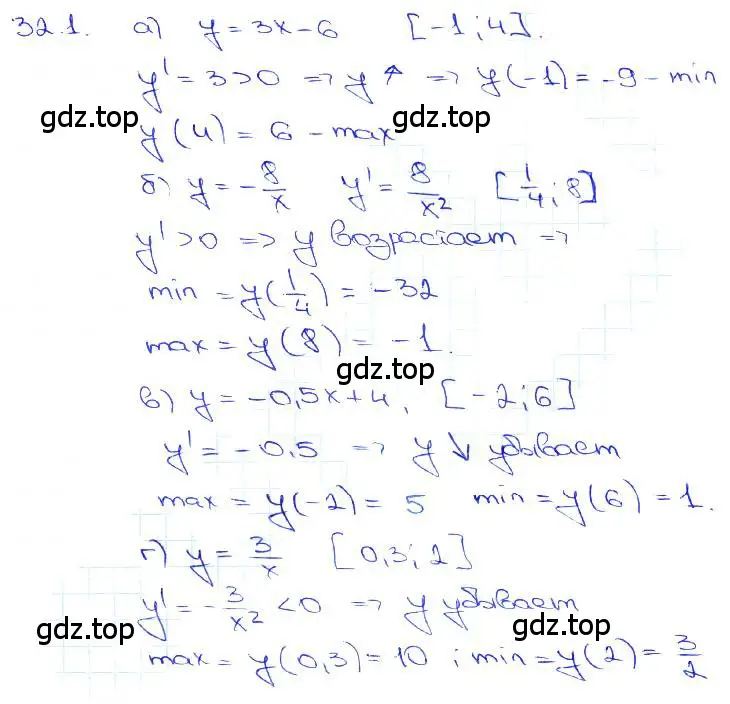 32.1. а) y = 3x - 6 [-1; 4].
y' = 3 > 0 => y ↑ => y(-1) = -9 - min
gdz.top gdz.top
y(4) = 6 - max
б) y = -8/x y' = 8/x² [1/4; 8]
y' > 0 => y возрастает =>
min = y(1/4) = -32
max = y(8) = -1.
gdz.top
в) y = -0,5x + 4, [-2; 6]
y' = -0.5 => y ↓ убывает
max = y(-2) = 5 min = y(6) = 1.
г) y = 3/x [0,3; 2]
y' = -3/x² < 0 => y убывает
gdz.top gdz.top
max = y(0,3) = 10 ; min = y(2) = 3/2